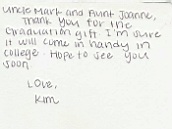 Uncle Mark and Aunt Joanne,
Thank you for the
graduation gift. I'm sure
it will come in handy in
college. Hope to see you
soon.
Love,
Kim